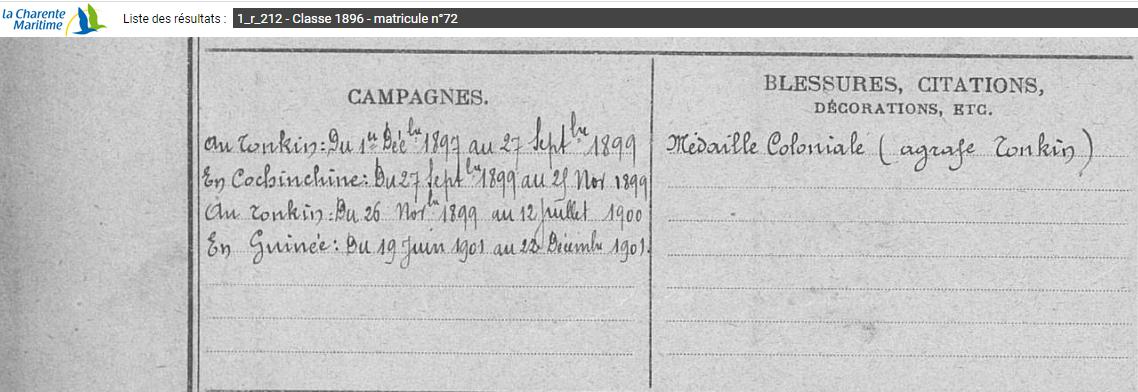 la Charente
Maritime
Liste des résultats :
1_r_212 - Classe 1896 - matricule n°72
CAMPAGNES.
Au Tonkin: Du 1er Décbre 1897 au 27 Septbre 1899
En Cochinchine: Du 27 Septbre 1899 au 25 Nov 1899
Au Tonkin: Du 26 Novbre 1899 au 12 juillet 1900
En Guinée: Du 19 Juin 1901 au 22 Décembre 1901.
BLESSURES, CITATIONS,
DÉCORATIONS, ETC.
Médaille Coloniale ( agrafe Tonkin )